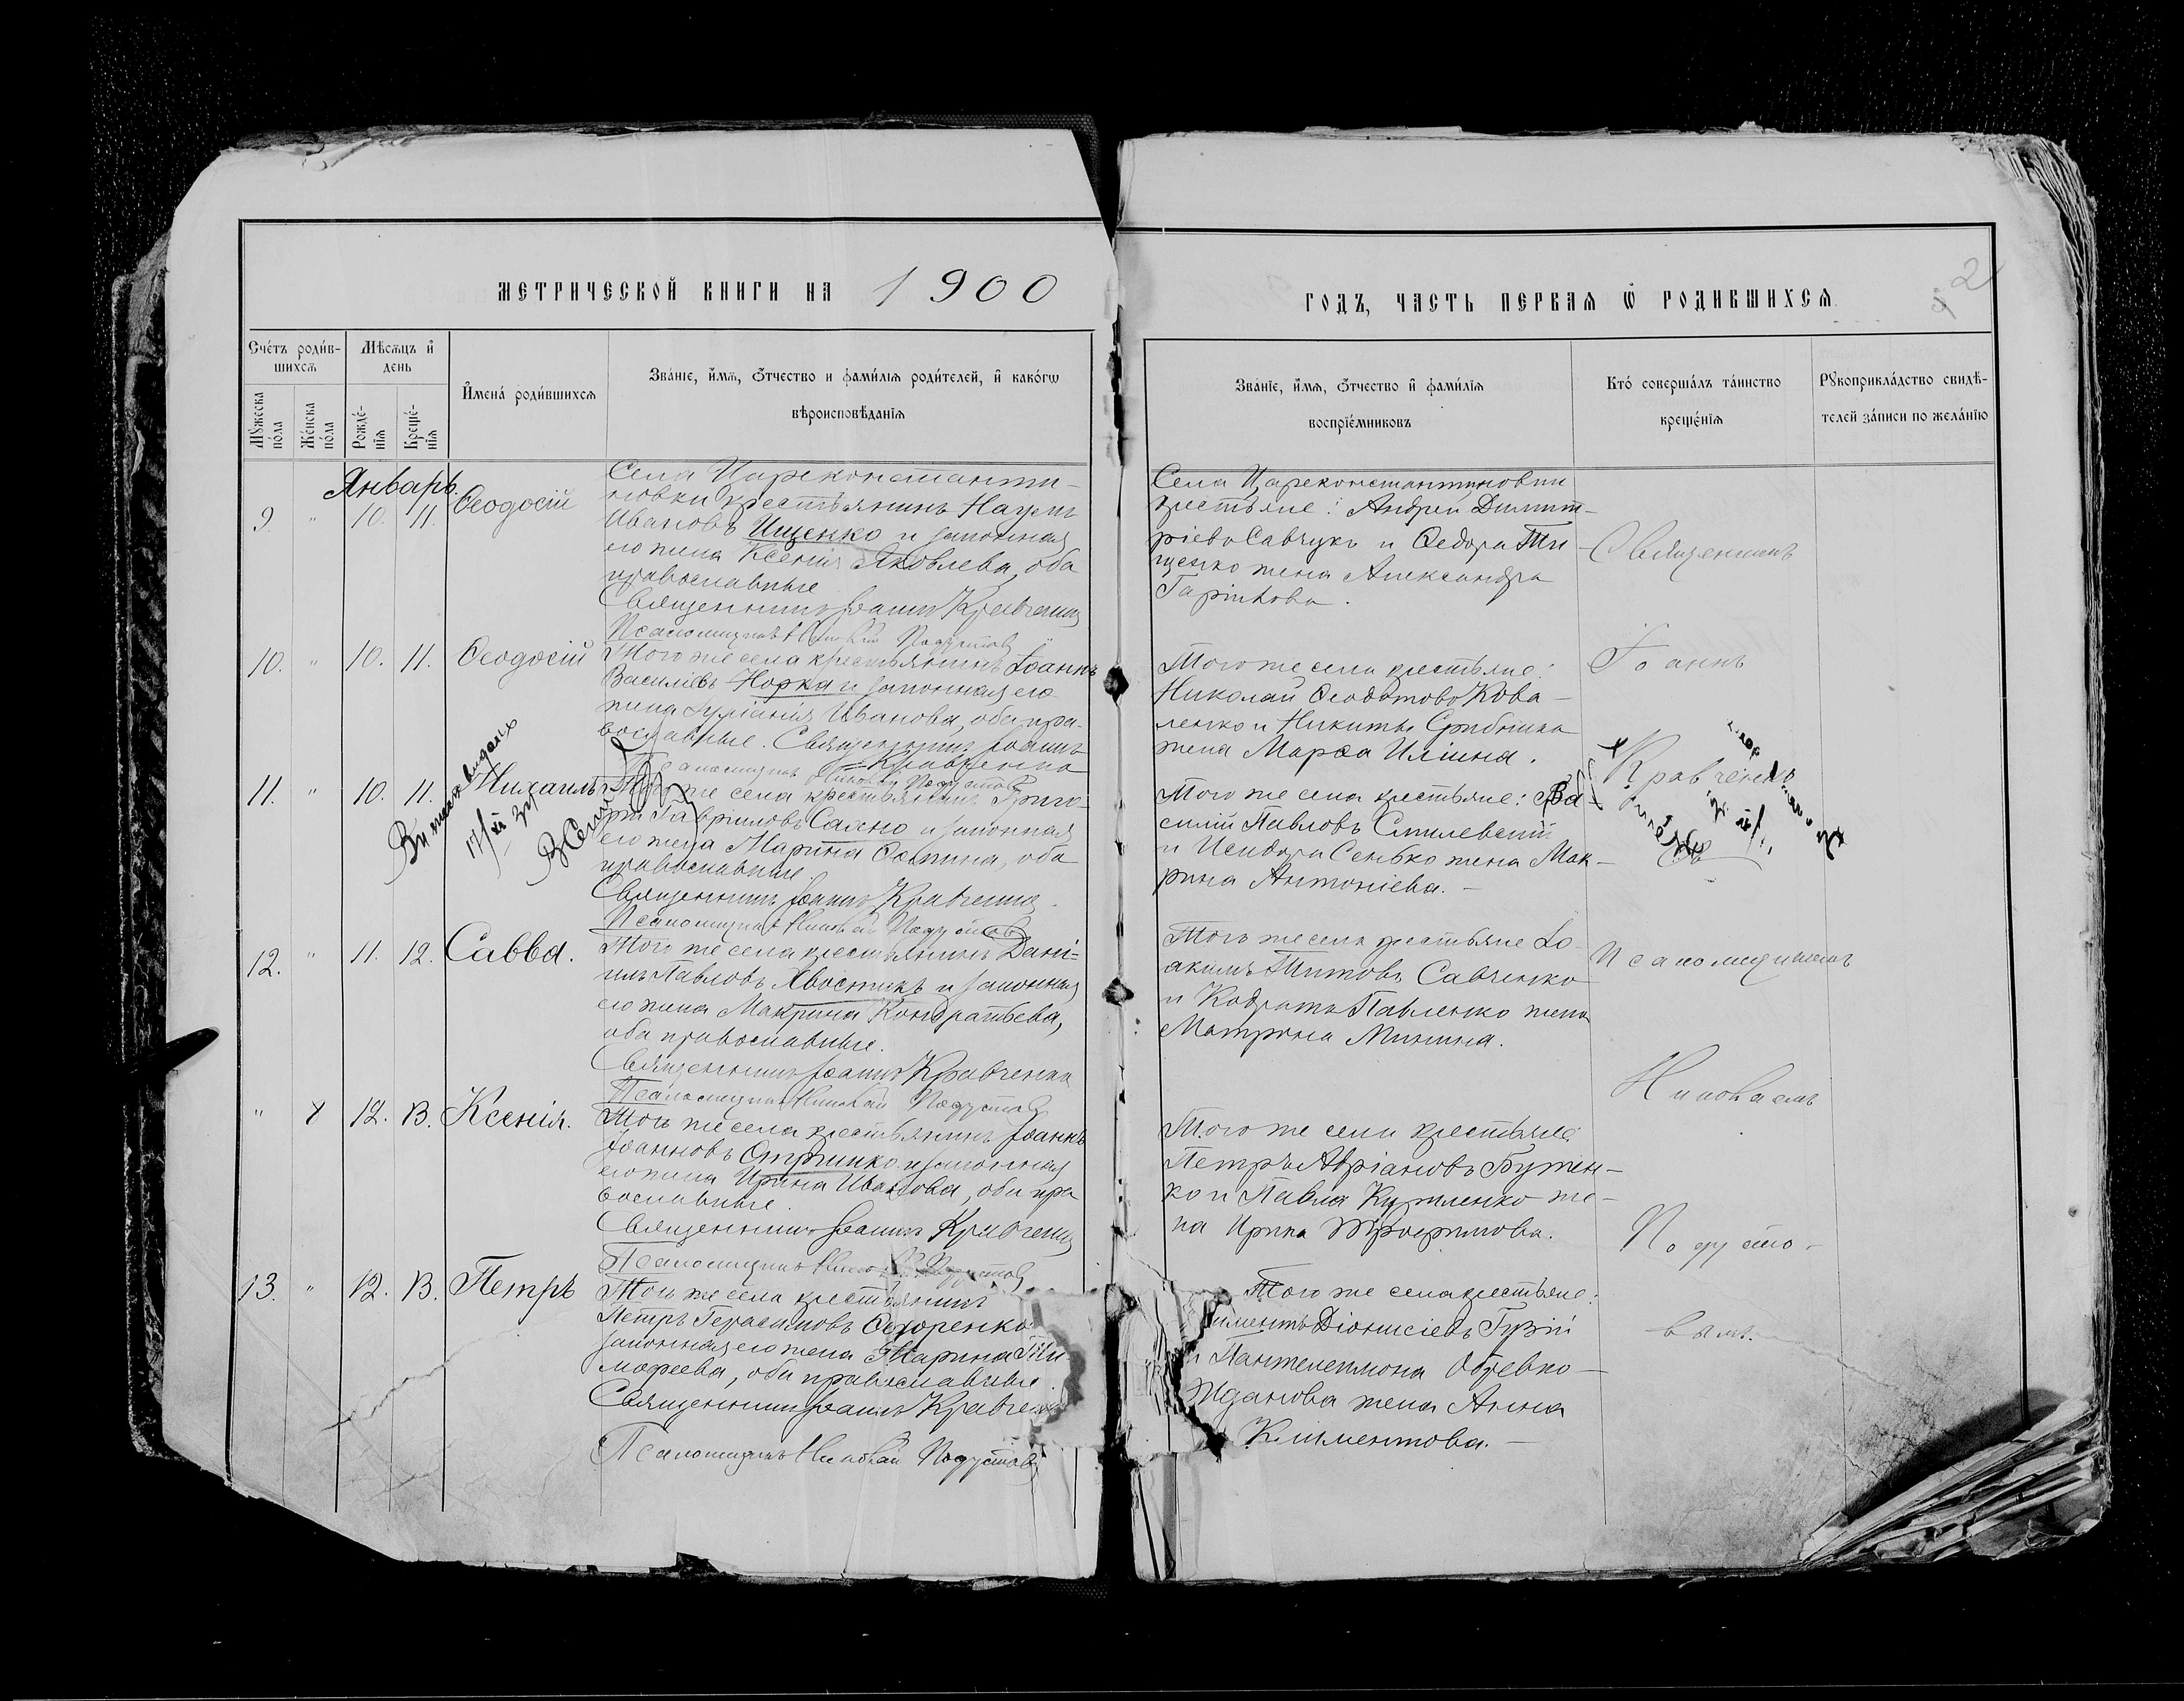 МЕТРИЧЕСКОЙ КНИГИ НА 1900
ГОДЪ, ЧАСТЬ ПЕРВАЯ Ѿ РОДИВШИХСѦ
2
Счетъ родив-
шихсѧ
Мѣсѧцъ и
день
Мужеска
пола
Женска
пола
Рожде-
нія
Креще-
нія
Имена родившихсѧ
Званіе, имѧ, отчество и фамилія родителей, и какогѡ
вѣроисповѣданія
Званіе, имѧ, отчество и фамилія
воспріемниковъ
Кто совершалъ таинство
крещенія
Рукоприкладство свидѣ-
телей записи по желанію
Январь.
9 " 10. 11. Ѳеодосій
Села Цареконстанти-
новки крестьянинъ Наумъ
Ивановъ Ищенко и законная
его жена Ксенія Яковлева, оба
православные
Священникъ Іоаннъ Кравченко
Псаломщикъ Николай Подустовъ
Села Цареконстантиновки
крестьяне: Андрей Димит-
ріевъ Савчукъ и Ѳедора Ти-
щенко жена Александра
10. " 10. 11. Ѳеодосій
Того же села крестьянинъ Іоаннъ
Василіевъ Норка и законная его
жена Иванова, оба пра-
вославные. Священникъ Іоаннъ
Кравченко
Псаломщикъ Николай Подустовъ
Того же села крестьяне:
Николай Ѳеодотовъ Кова-
ленко и Никиты
жена Марѳа Иліина.
11. " 10. 11. Михаилъ
Того же села крестьянинъ Григо-
рій Гавриловъ Сахно и законная
его жена Марина Осипина, оба
православные
Священникъ Іоаннъ Кравченко
Псаломщикъ Николай Подустовъ
Того же села крестьяне: Ва-
силій Павловъ Смилевскій
и Исидора Сенько жена Мак-
рина Антоніева.
12. " 11. 12. Савва.
Того же села крестьянинъ Дані-
илъ Павловъ Хвостикъ и законная
его жена Макрина Кондратьева,
оба православные.
Священникъ Іоаннъ Кравченко
Псаломщикъ Николай Подустовъ
Того же села крестьяне Іо-
акимъ Титовъ Савченко
и Кодрата Павленко жена
Матрона Минина.
" 8 12. 13. Ксенія.
Того же села крестьянинъ Іоаннъ
Іоанновъ и законная
его жена Ирина Иванова, оба пра-
вославные.
Священникъ Іоаннъ Кравченко
Псаломщикъ Николай Подустовъ
Того же села крестьяне:
Петръ Адріановъ Бутен-
ко и Павла Куриленко же-
на Ирина Трофимова.
13. " 12. 13. Петръ
Того же села крестьянинъ
Петръ Герасимовъ
законная его жена Марина Ти-
моѳеева, оба православные.
Священникъ Іоаннъ
Псаломщикъ Николай Подустовъ
Того же села крестьяне:
Діонисіевъ Гузій
и Пантелеимона
Жданова жена Анна
Климентова.
Священникъ
Іоаннъ
Кравченко
Псаломщикомъ
Николаемъ
Подусто-
вымъ.